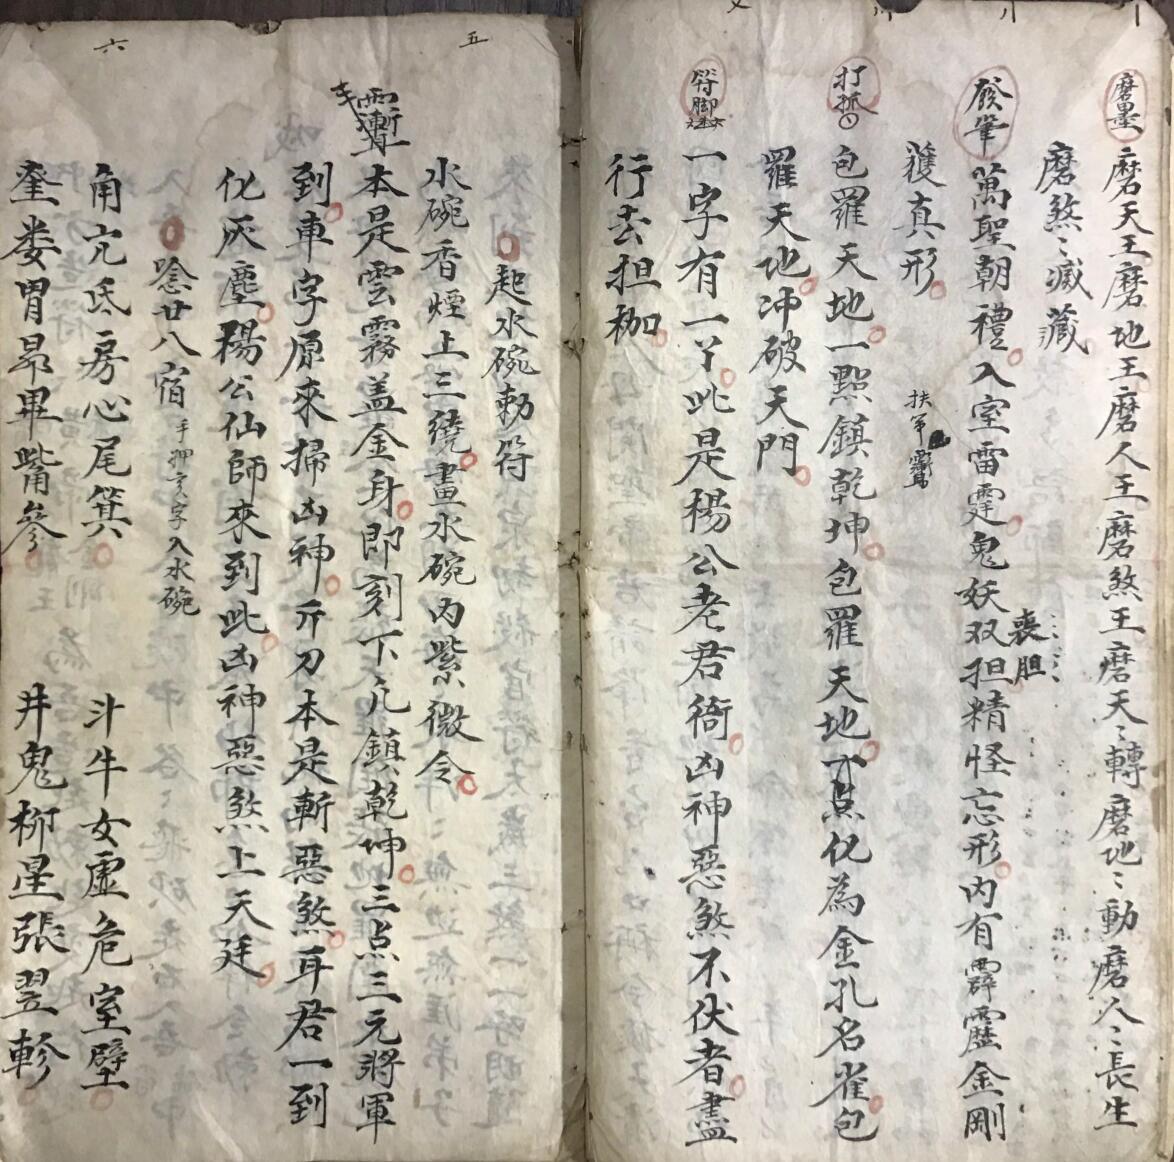 磨墨
磨天王磨地王磨人王磨煞王磨天〻轉磨地〻動磨人〻長生
磨煞〻滅藏
發筆
萬聖朝禮入室雷霆鬼妖双担精怪忘形內有霹靂金剛
喪胆
護真形
扶筆
打抓
包羅天地一點鎮乾坤包羅天地下点化為金孔名雀包
羅天地冲破天門
符脚
一字有一丫此是楊公老君衙凶神惡煞不伏者盡
行去担枷
五
起水碗勅符
水碗香煙上三繞畫水碗內紫微令
本是雲霧盖金身即刻下凡鎮乾坤三点三元將軍
到車字原來掃凶神斤刀本是斬惡煞耳君一到
化灰塵楊公仙師來到此凶神惡煞上天廷
唸廿八宿手押亥字入水碗
角亢氐房心尾箕 斗牛女虛危室壁
奎娄胃昴畢觜參 井鬼柳星張翌軫
六